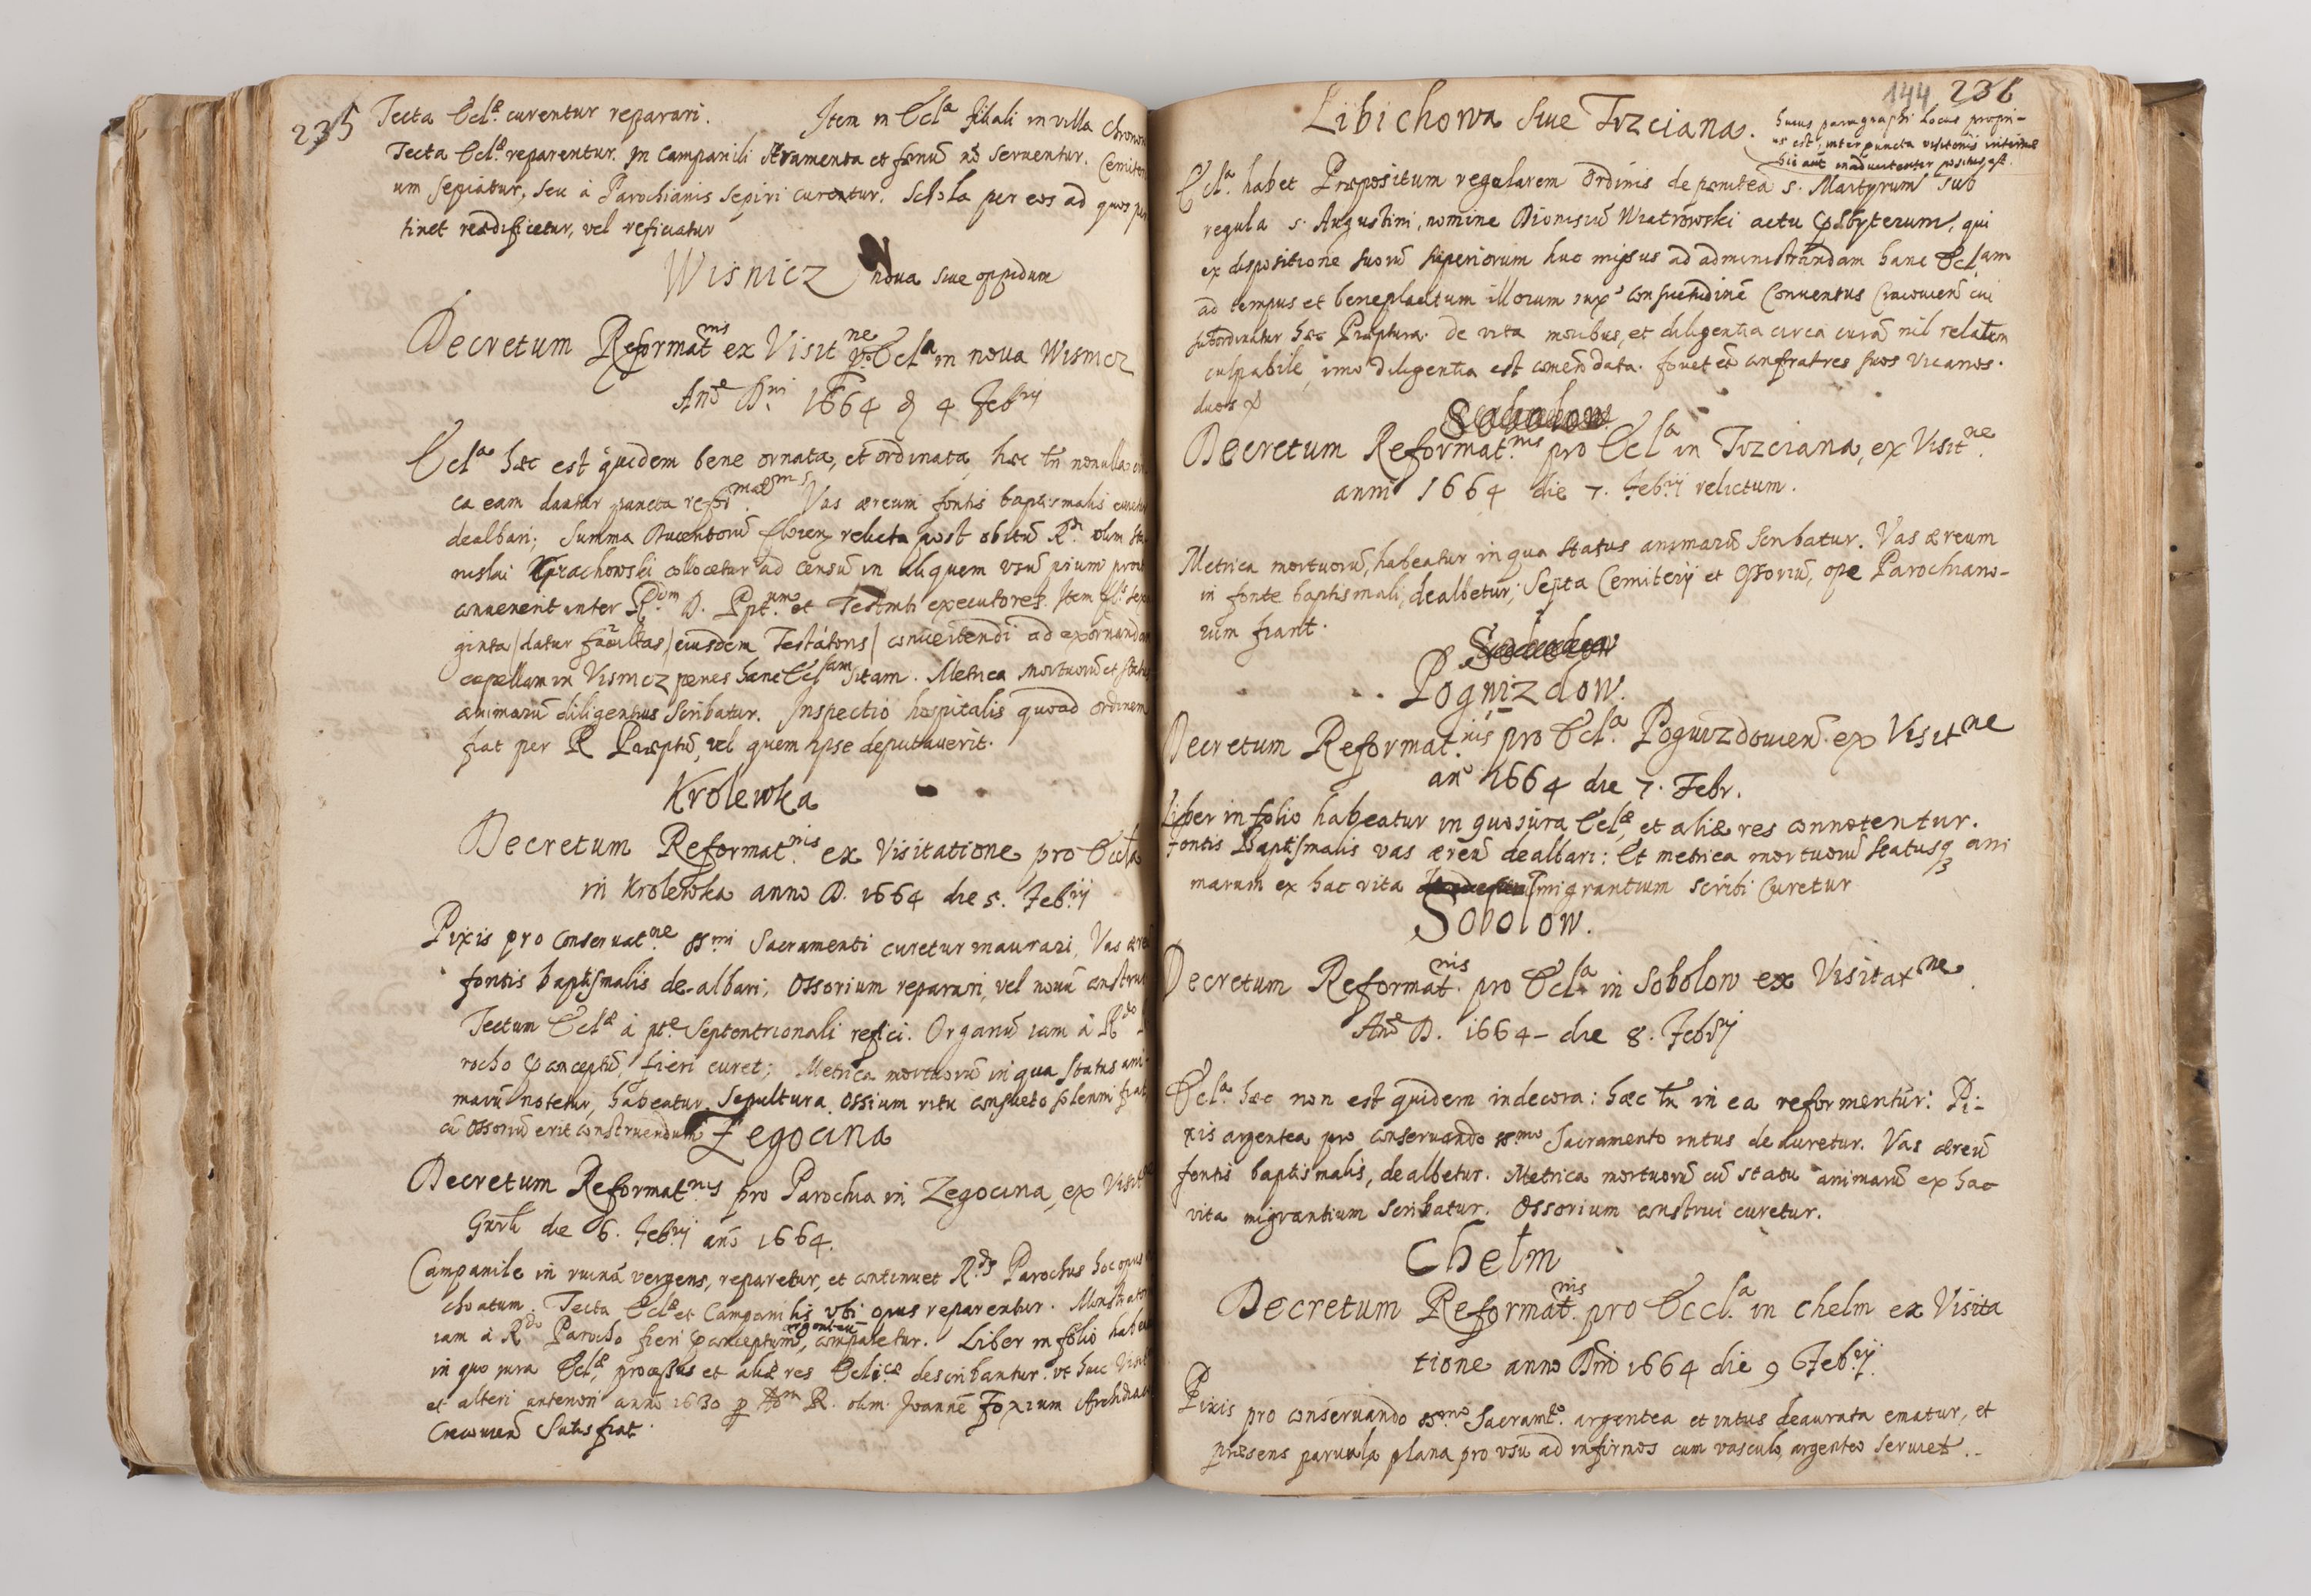 235
Tecta Eclæ curentur reparari. Item in Ecla filiali in villa Chronow
Tecta Eclæ reparentur. In Campanili stramenta et fænū nō seruentur. Cemiteri
um sepiatur, seu à Parochianis sepiri curentur. Schola per eos ad quos per
tinet reædificetur, vel reficiatur
Wisnicz noua siue oppidum
Decretum Reformatnis ex Visitne Ecla in noua Wisnicz
Anō Dni 1664 4 Febrij
Ecla hæc est quidem bene ornata, et ordinata, hæc tn̄ nonulla cir
ca eam dantur puncta Vas æreum fontis baptismalis curetur
dealbari; Summa Ducentorū floren relicta post obitū Rdi olim Sta
nislai Grachowski collocetur ad censū in aliquem vsū pium prout
conuenerit inter Rdum D. et Testmti executores. Item
ginta /datur facultas/ eiusdem Testatoris / conuertendi ad exornandam
capellam in Visnicz penes hanc Eclam sitam. Metrica mortuorū et status
animarū diligentius scribatur. Inspectio hospitalis quoad ordinem
fiat per R Præptū, vel quem ipse deputauerit.
Krolewka
Decretum Reformatnis ex Visitatione pro Eccla
in Krolewka anno D. 1664 die 5. Febrij
Pixis pro conseruatne SSmi Sacramenti curetur inaurari, Vas æreū
fontis baptismalis de-albari; Ossorium reparari, vel nouū construi
Tectum Eclæ à pte Septentrionali refici. Organū iam à Rdo Pa
rocho conceptū, fieri curet; Metrica mortuorū in qua status ani
marū notetur, habeatur. Sepultura ossium ritu consueto solenni fiat,
cū ossoriū erit construendum
Zegocina
Decretum Reformatnis pro Parochia in Zegocina, ex Visitne
Gnrli die 6. Febrij anō 1664.
Campanile in ruinā vergens, reparetur, et continuet Rdus Parochus hoc opus in
choatum. Tecta Eclæ et Campanilis vbi opus reparentur. Monstratoriū
iam à Rdo Parocho fieri conceptum argenteū, comparetur. Liber in folio habeatur
in quo iura Eclæ, processus et aliæ res Eclicæ describantur. vt huic Visitni
et alteri anteriori anno 1630 R. olim Joannē Foxium Archidiaconū
Cracouien Satisfiat.
144 236
Libichowa siue Trzciana.
huius paragraphi locus propri-
us est inter puncta visitonis
hic aut̄ inaduertenter positus est.
Ecla habet Præpositum regularem Ordinis de pænitea S. Martyrum sub
regula S. Augustini, nomine Dionisiū Wiatrowski actu Pbsbyterum, qui
ex dispositione suorū superiorum huc missus ad administrandam hanc Eclam
ad tempus et beneplacitum illorum iux consuetudinē Conuentus Cracouien cui
subordinatur hæc Præptura. De vita moribus, et diligentia circa curā nil relatum
culpabile, imo diligentia est comendata. fouet cō confratres suos vicarios.
duos
Sobolow
Decretum Reformatnis pro Ecla in Trzciana, ex Visitne
anni 1664 die 7. Febrij relictum.
Metrica mortuorū, habeatur in qua status animarū scribatur. Vas æreum
in fonte baptismali, dealbetur; Septa Cemiterij et Ossoriū, ope Parochiano-
rum fiant.
Sobolow
Pogwizdow.
Decretum Reformatnis pro Ecla Poguizdouien. ex Visitne
anō 1664 die 7. Febr.
Liber in folio habeatur in quo iura Eclæ, et aliæ res connotentur.
Fontis Baptismalis vas æreū dealbari: Et metrica mortuorū statusq3 ani
marum ex hac vita migrantium scribi curetur
Sobolow.
Decretum Reformatnis pro Ecla in Sobolow ex Visitatne.
Anō D. 1664 - die 8. Febrij
Ecla hæc non est quidem indecora: hæc tn̄ in ea reformentur: Pi-
xis argentea pro conseruando SSmo Sacramento intus deauretur. Vas æreū
fontis baptismalis, dealbetur. Metrica mortuorū cū statu animarū ex hac
vita migrantium scribatur. Ossorium construi curetur.
Chełm
Decretum Reformatnis pro Eccla in Chelm ex Visita
tione anno Dnī 1664 die 9 Febrij.
Pixis pro conseruando SSmo Sacramto argentea et intus deaurata ematur, et
præsens paruula plana pro vsu ad infirmos cum vasculo argenteo seruiet.-